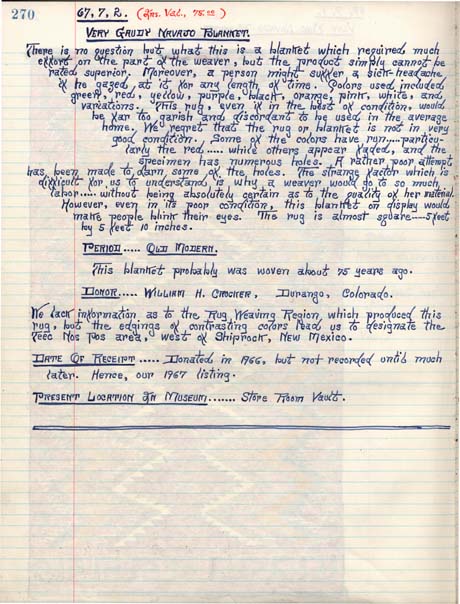 270
67, 7, 2. (Ins. Val., 75.00)
VERY GAUDY NAVAJO BLANKET.
There is no question but what this is a blanket which required much
effort on the part of the weaver, but the product simply cannot be
rated superior. Moreover, a person might suffer a sick-headache
if he gazed at it for any length of time. Colors used included
green, red, yellow, purple, black, orange, pink, white, and
variations. This rug, even if in the best of condition, would
be far too garish and discordant to be used in the average
home. We regret that the rug or blanket is not in very
good condition. Some of the colors have run....particu-
larly the red..... while others appear faded, and the
specimen has numerous holes. A rather poor attempt
has been made to darn some of the holes. The strange factor which is
difficult for us to understand is why a weaver would go to so much
labor.... without being absolutely certain as to the quality of her material.
However, even in its poor condition, this blanket on display would
make people blink their eyes. The rug is almost square---5 feet
by 5 feet 10 inches.
PERIOD..... OLD MODERN.
This blanket probably was woven about 75 years ago.
DONOR..... WILLIAM H. CROCKER, Durango, Colorado.
We lack information as to the Rug Weaving Region, which produced this
rug, but the edgings of contrasting colors lead us to designate the
Teec Nos Pos area, west of Shiprock, New Mexico.
DATE OF RECEIPT..... Donated in 1966, but not recorded until much
later. Hence, our 1967 listing.
PRESENT LOCATION IN MUSEUM....... Store Room Vault.